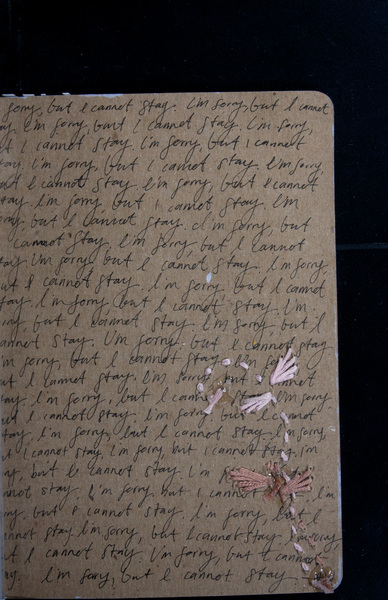 sorry, but I cannot stay. I'm sorry, but I cannot
I'm sorry, but I cannot stay. I'm sorry,
I cannot stay. I'm sorry, but I cannot
I'm sorry, but I cannot stay. I'm sorry
I cannot stay. I'm sorry, but I cannot
stay. I'm sorry, but I cannot stay. I'm
but I cannot stay. I'm sorry, but
cannot stay. I'm sorry, but I cannot
I'm sorry, but I cannot stay. I'm sorry,
but I cannot stay. I'm sorry, but I cannot
stay. I'm sorry, but I cannot stay. I'm
but I cannot stay. I'm sorry, but I
cannot stay. I'm sorry, but I cannot stay
I'm sorry, but I cannot stay. I'm
I cannot stay. I'm sorry but I cannot
I'm sorry, but I stay I'm sorry
I cannot stay. I'm sorry, but I cannot
stay, I'm sorry, but I cannot stay. I'm sorry,
I cannot stay, I'm sorry, but I cannot stay, I'm
but I cannot stay I'm
stay. I'm sorry, but I cannot I'm
but I cannot stay. I'm sorry, but I
stay. I'm sorry, but I cannot stay. I'm sorry,
I cannot stay. I'm sorry, but I cannot
I'm sorry, but I cannot stay